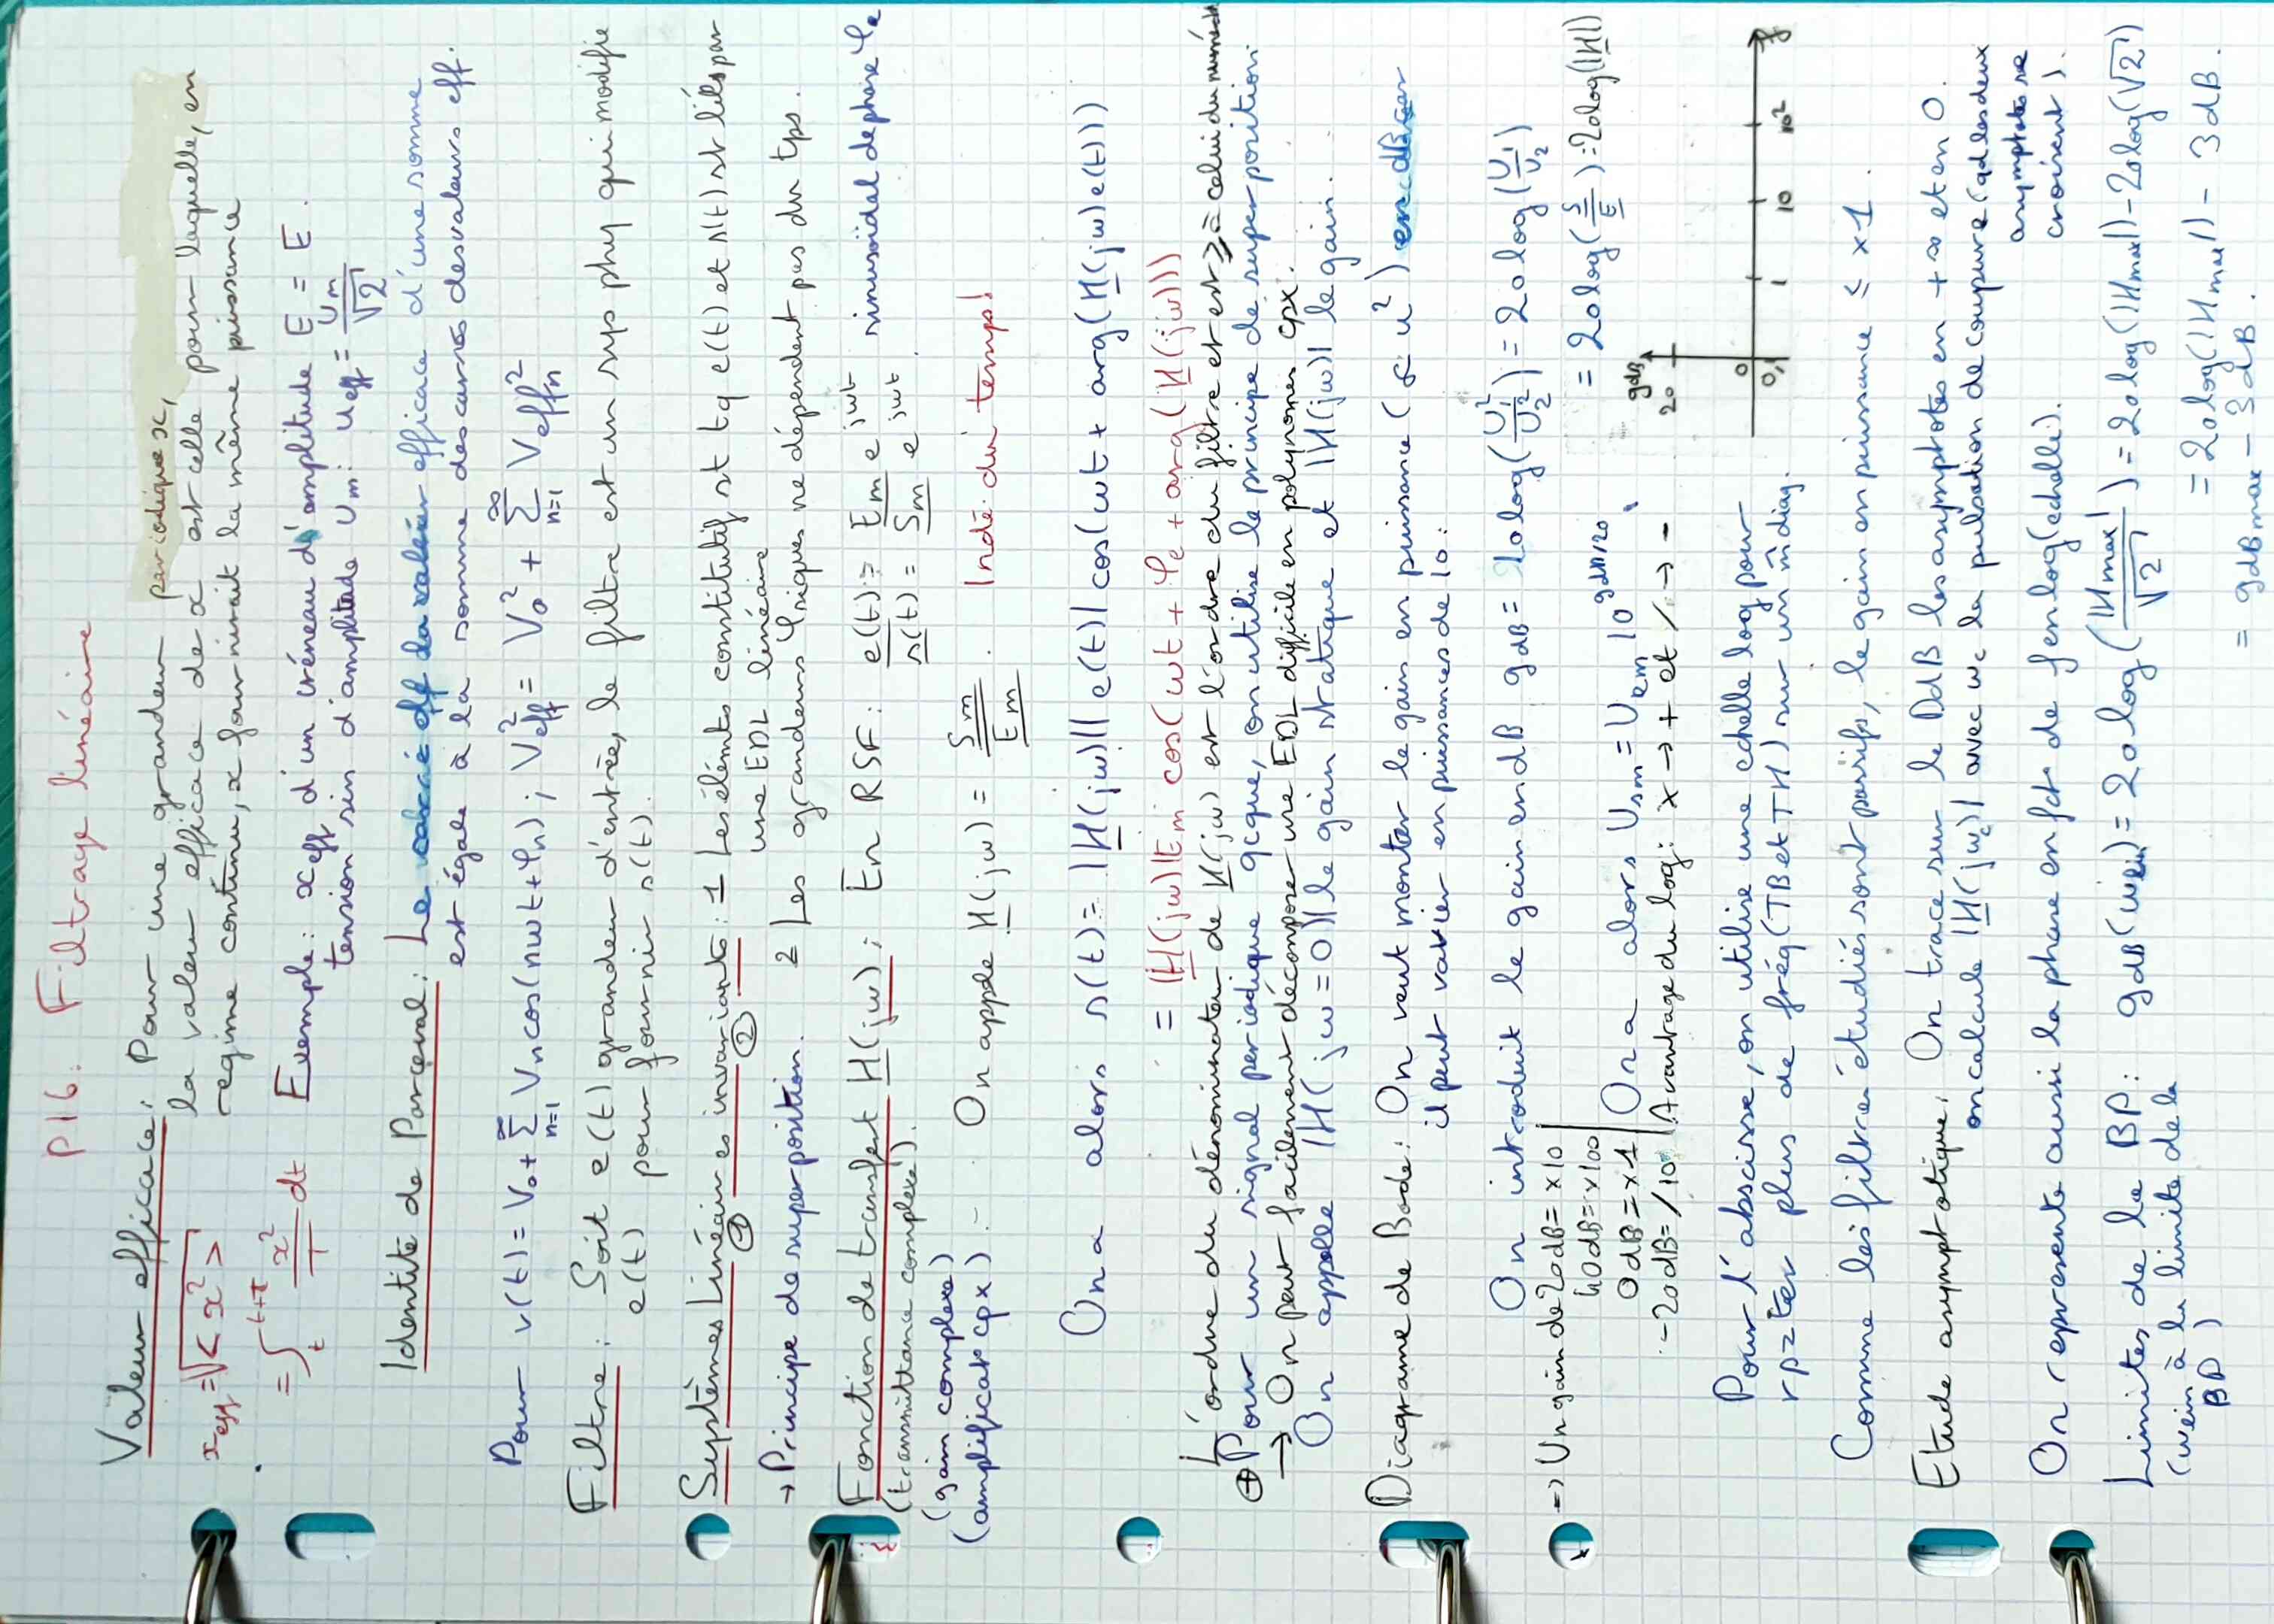 P16: Filtrage linéaire
Valeur efficace: Pour une grandeur périodique x,
la valeur efficace de x est celle pour laquelle, en
régime continu, x fournirait la même puissance
x_eff = √<x²>
= ∫_t^{t+T} x²/T dt
Exemple: x_eff d'un créneau d'amplitude E = E.
tension sin d'amplitude Um: Ueff = Um/√2
Identité de Parseval: Le carré eff da valeur efficace d'une somme
est égale à la somme des carrés des valeurs eff.
Pour v(t) = V₀ + Σ_{n=1}^{∞} Vn cos(nωt + φn); V²eff = V₀² + Σ_{n=1}^{∞} Veffn²
Filtre: Soit e(t) grandeur d'entrée, le filtre est un sys phy qui modifie
e(t) pour fournir s(t).
Systèmes Linéaires invariants: 1 Les élémts constitutifs st tq e(t) et s(t) st liés par
① ② une EDL linéaire
→ Principe de superposition. 2 Les grandeurs φsiques ne dépendent pas du tps.
Fonction de transfert H(jω): En RSF: e(t) = Em e^{jωt} sinusoïdal de phase φe
(transmittance complexe). s(t) = Sm e^{jωt}
(gain complexe)
(amplificat° cpx) On appelle H(jω) = Sm/Em. Indé. du temps!
On a alors s(t) = |H(jω)||e(t)|cos(ωt + arg(H(jω)e(t)))
= |H(jω)|Em cos(ωt + φe + arg(H(jω)))
L'ordre du dénominateur de H(jω) est l'ordre du filtre et est ≥ à celui du numérat
⊕ Pour un signal périodique qcque, on utilise le principe de superposition
→ On peut facilement décomposer une EDL difficile en polynomes cpx.
On appelle |H(jω=0)| le gain statique et |H(jω)| le gain.
Diagramme de Bode: On veut montrer le gain en puissance (∝ u²) en dB car
il peut varier en puissances de 10:
On introduit le gain en dB gdB = 10log(U₁²/U₂²) = 20log(U₁/U₂)
= 20log(S/E) = 20log(|H|)
=> Un gain de 20dB = x10
40dB = x100
0dB = x1
-20dB = /10
On a alors Usm = Uem 10^{gdB/20}
Avantage du log: x → + et / → -
gdB
20
0
0,1 1 10 10² f
Pour l'abscisse, on utilise une échelle log pour
rpzter plus de fréq (TB et TH) sur un m̂ diag.
Comme les filtres étudiés sont passifs, le gain en puissance ≤ x1.
Etude asymptotique: On trace sur le DdB les asymptotes en +∞ et en 0.
on calcule |H(jωc)| avec ωc la pulsation de coupure (qd les deux
asymptotes se
croisent).
On représente aussi la phase en fct° de f en log (echelle).
Limites de la BP: gdB(ωlim) = 20log(|Hmax|/√2) = 20log(|Hmax|) - 20log(√2)
(ωlim à la limite de la
BP)
= 20log(|Hmax|) - 3dB.
= gdBmax - 3dB.